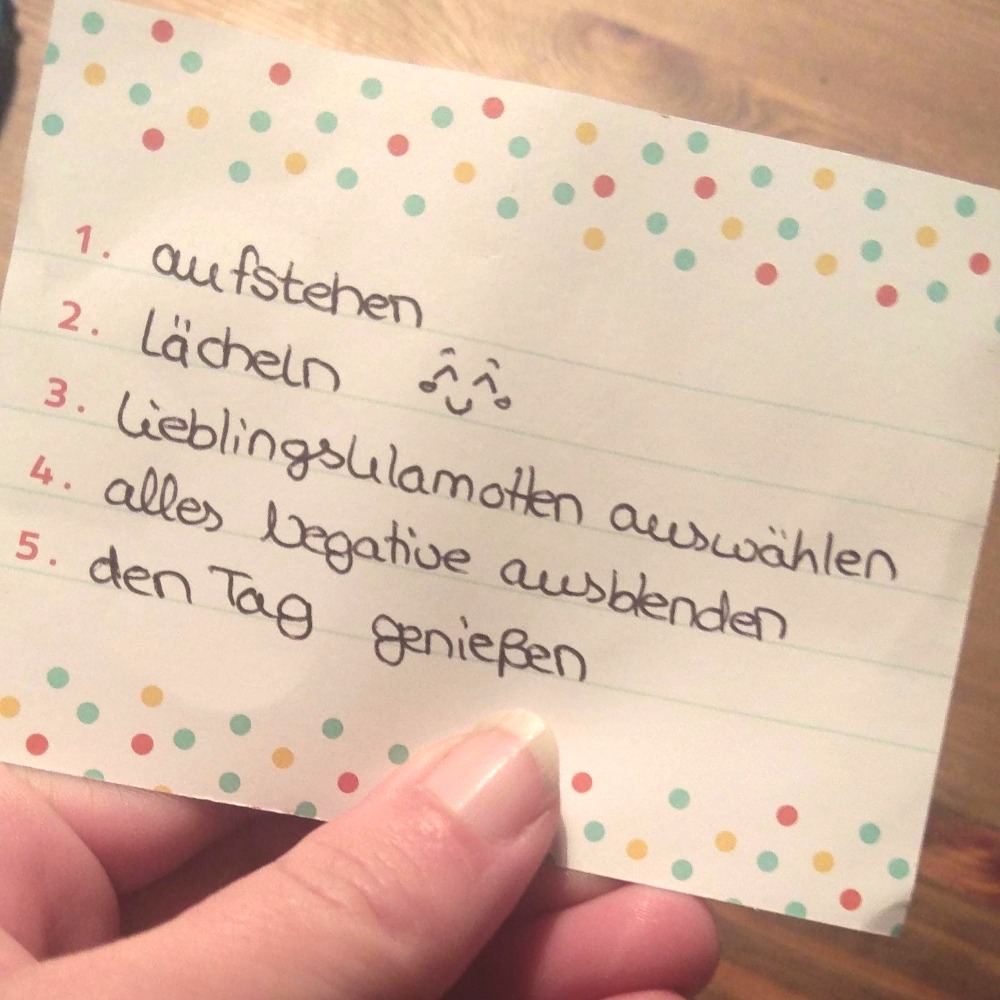 1. aufstehen
2. Lächeln
3. Lieblingsklamotten auswählen
4. alles Negative ausblenden
5. den Tag genießen